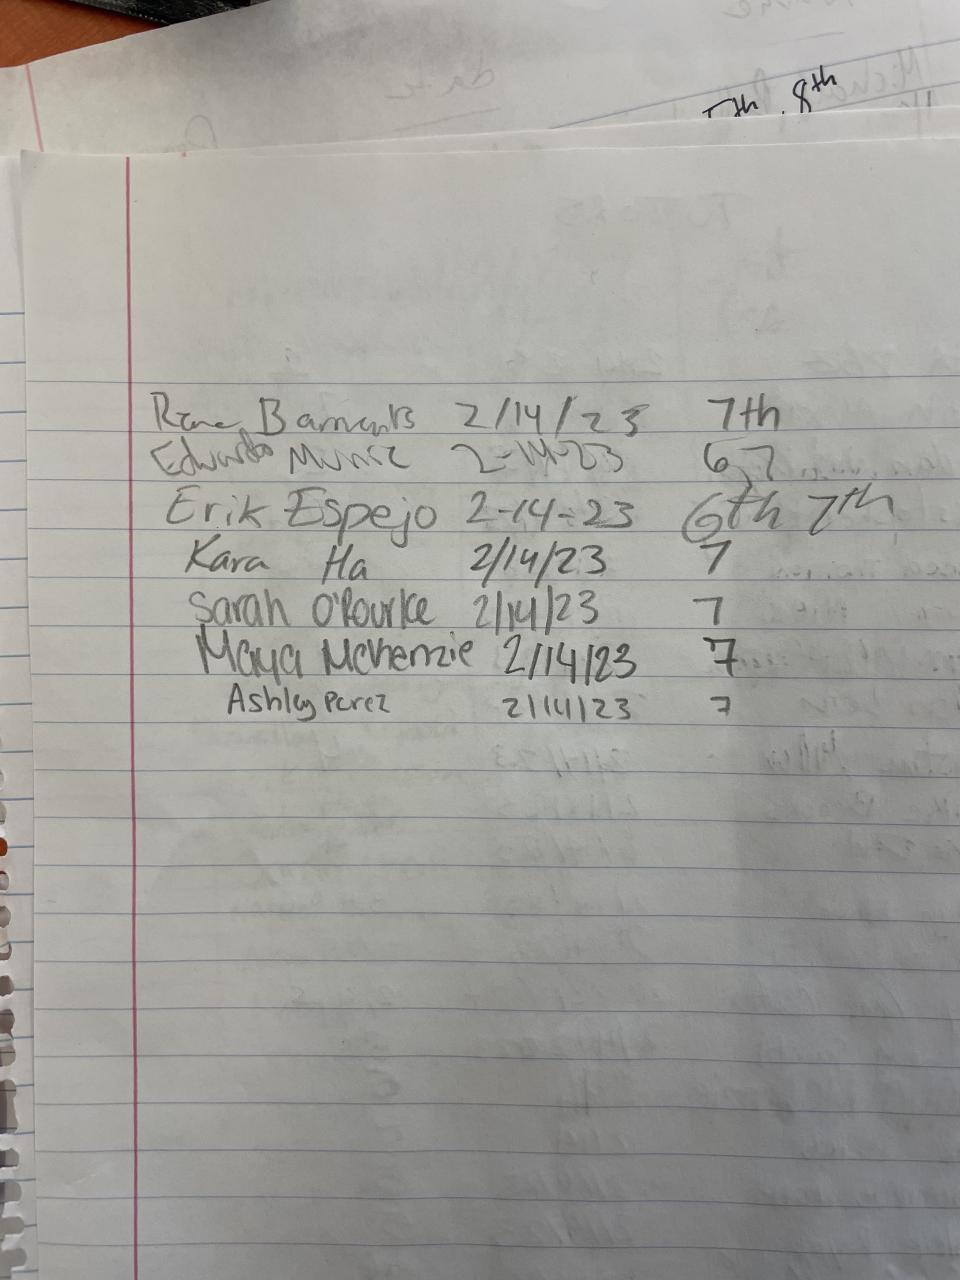 5th, 8th
2/14/23 7th
Eduardo Muniz 2-14-23 6,7
Erik Espejo 2-14-23 6th 7th
Kara Ha 2/14/23 7
Sarah O'Rourke 2/14/23 7
Maya McKenzie 2/14/23 7
Ashley Perez 2/14/23 7